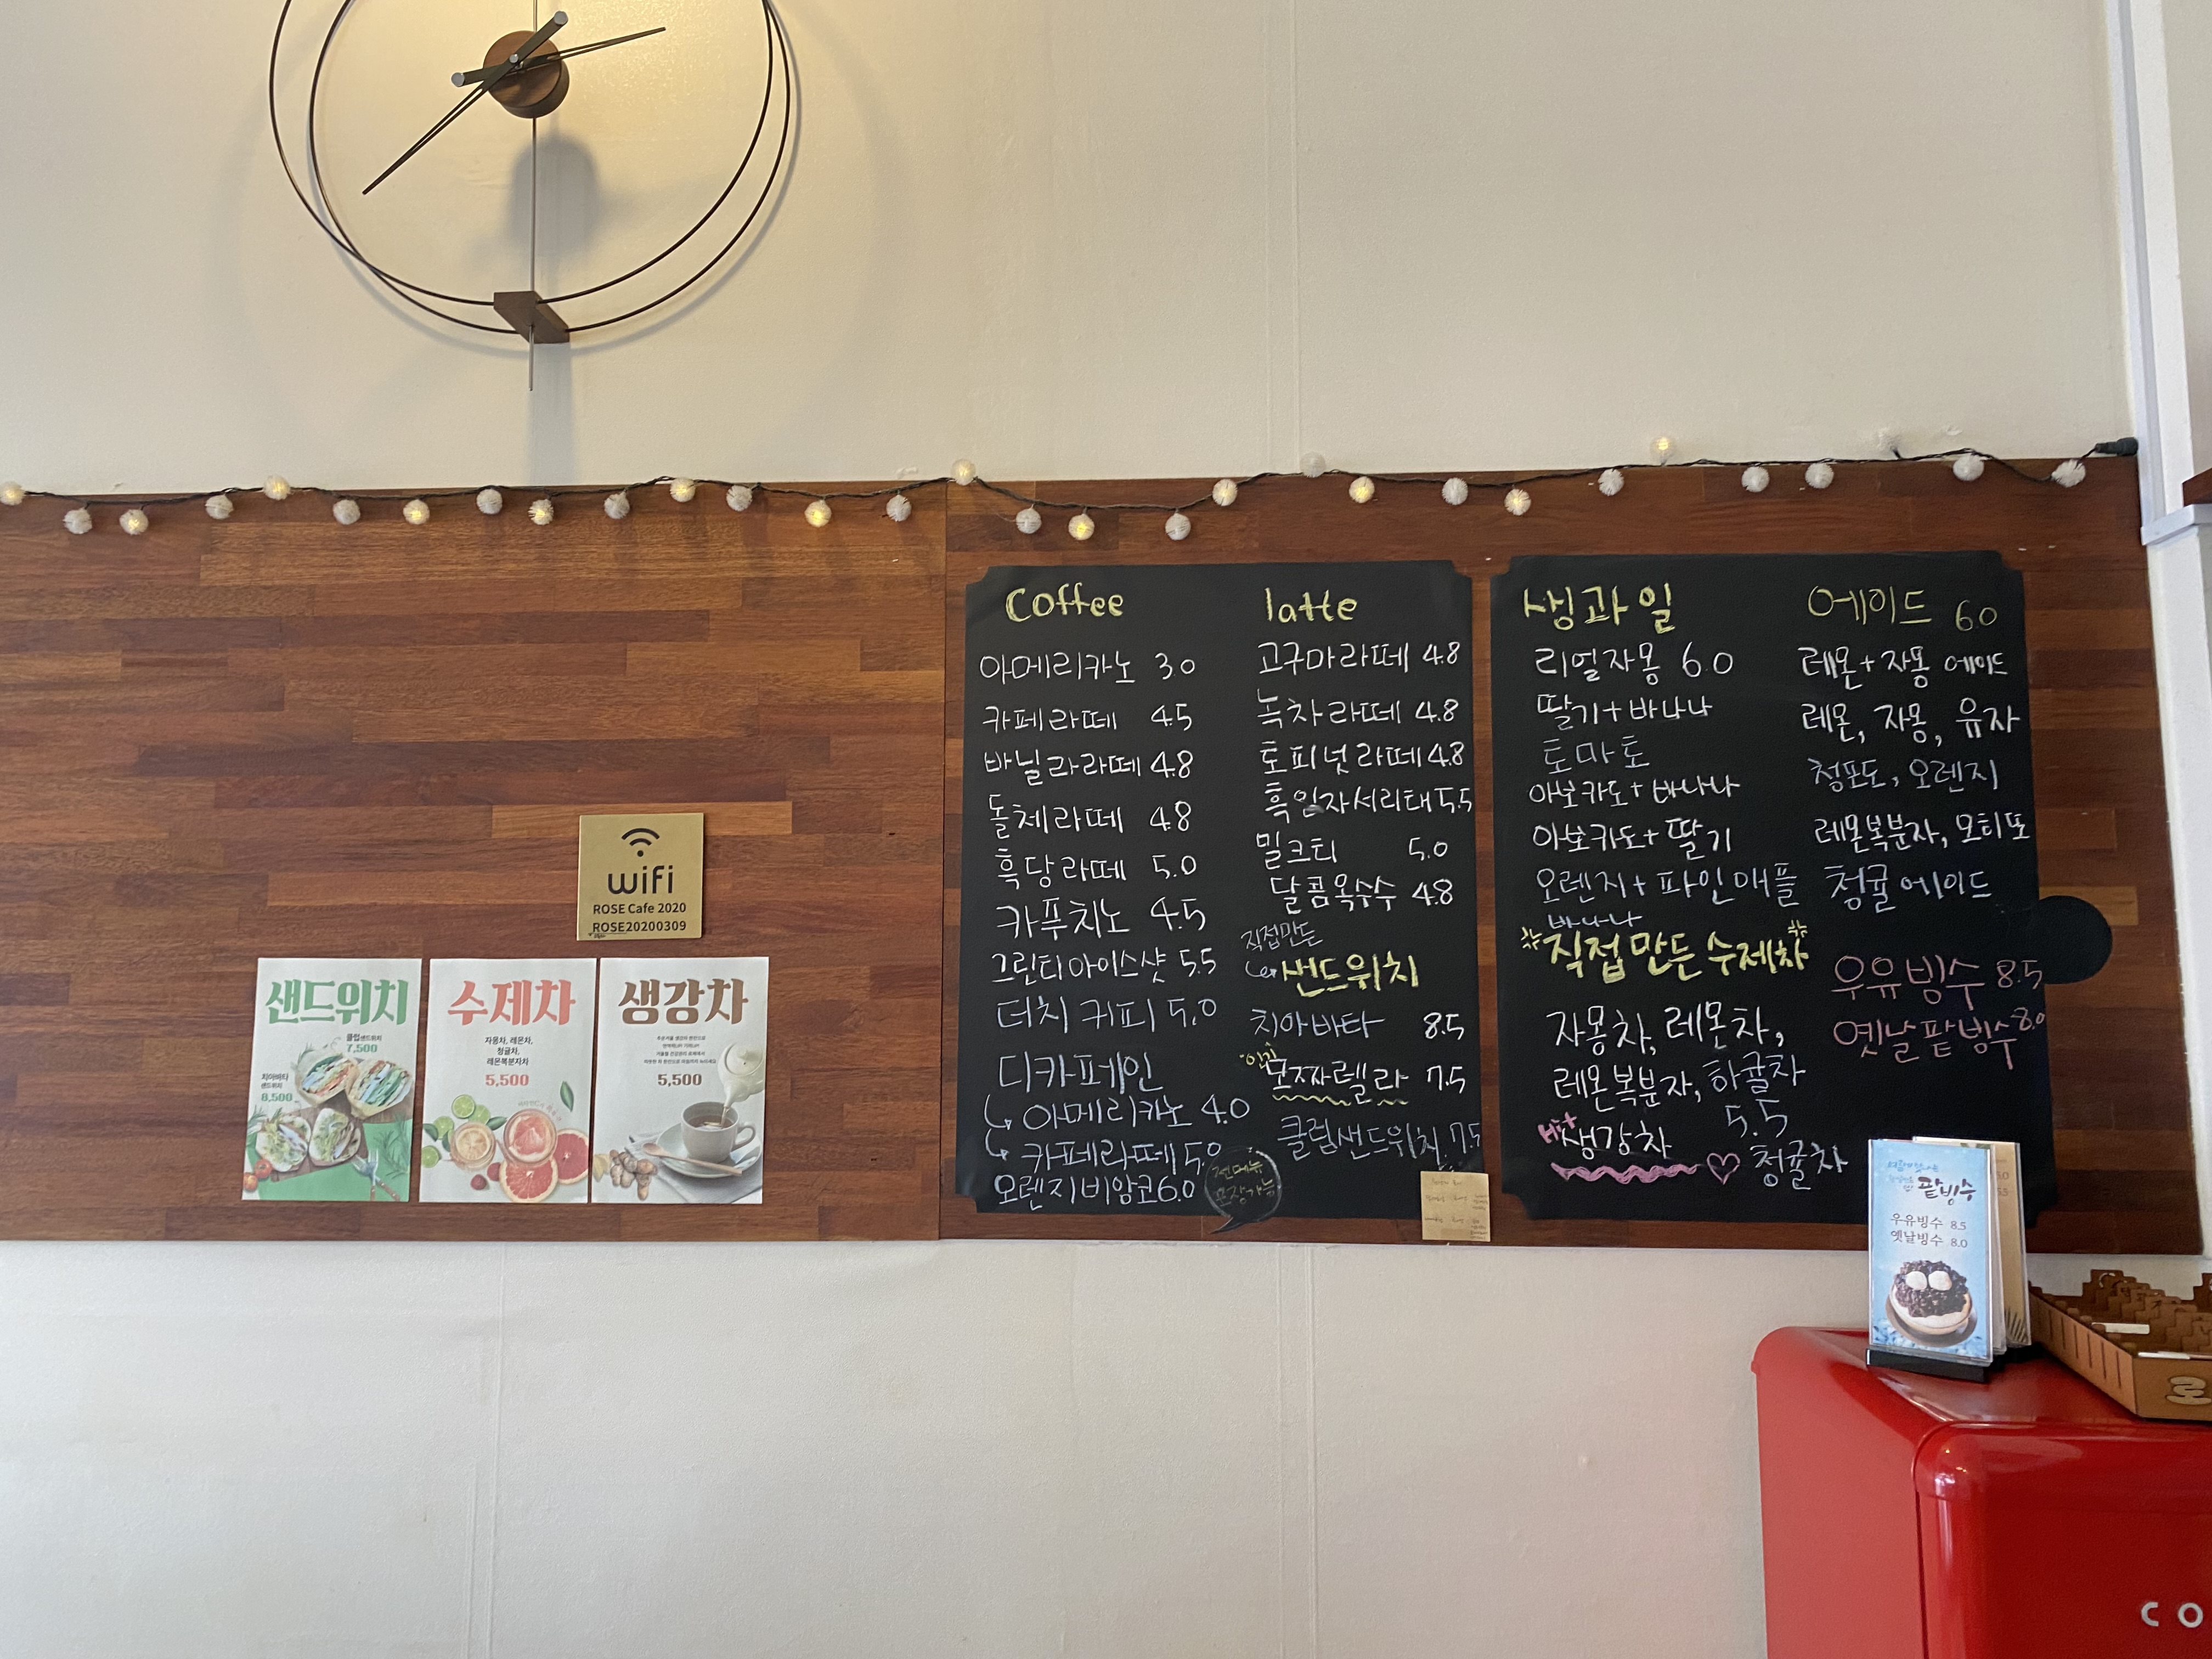 wifi
ROSE Cafe 2020
ROSE20200309
샌드위치
클럽샌드위치
7,500
치아바타
샌드위치
8,500
수제차
자몽차, 레몬차,
청귤차,
레몬복분자차
5,500
생강차
5,500
Coffee
아메리카노 3.0
카페라떼 4.5
바닐라라떼 4.8
돌체라떼 4.8
흑당라떼 5.0
카푸치노 4.5
그린티아이스샷 5.5
더치커피 5.0
디카페인
아메리카노 4.0
카페라떼 5.0
오렌지비앙코 6.0
latte
고구마라떼 4.8
녹차라떼 4.8
토피넛라떼 4.8
흑임자서리태 5.5
밀크티 5.0
달콤옥수수 4.8
직접만든
샌드위치
치아바타 8.5
모짜렐라 7.5
클럽샌드위치 7.5
전메뉴
포장가능
생과일
리얼자몽 6.0
딸기+바나나
토마토
아보카도+바나나
아보카도+딸기
오렌지+파인애플
바나나
직접만든 수제차
자몽차, 레몬차,
레몬복분자, 하귤차
5.5
Hit
생강차 ♡ 청귤차
에이드 6.0
레몬+자몽 에이드
레몬, 자몽, 유자
청포도, 오렌지
레몬복분자, 모티또
청귤에이드
우유빙수 8.5
옛날팥빙수 8.0
팥빙수
우유빙수 8.5
옛날빙수 8.0
로
CO